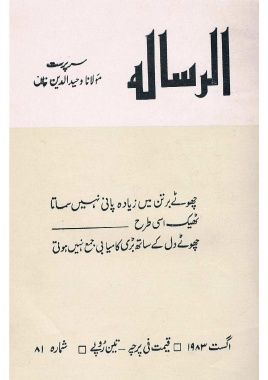 الرسالہ
سرپرست
مولانا وحید الدین خان
چھوٹے برتن میں زیادہ پانی نہیں سماتا
ٹھیک اسی طرح
چھوٹے دل کے ساتھ بڑی کامیابی جمع نہیں ہوتی
اگست ۱۹۸۳ □ قیمت فی پرچہ — تین روپے □ شمارہ ۸۱